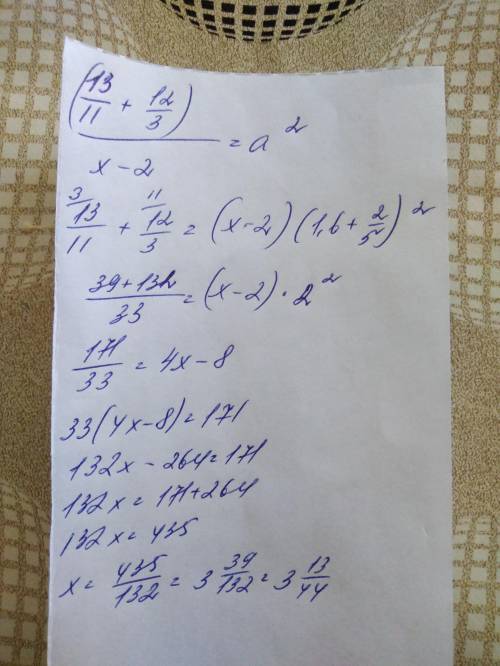 (13/11 + 12/3) / (x-2) = a²
³13/11 + ¹¹12/3 = (x-2)(1,6 + 2/5)²
(39+132)/33 = (x-2)·2²
171/33 = 4x-8
33(4x-8)=171
132x-264=171
132x=171+264
132x=435
x= 435/132 = 3 39/132 = 3 13/44